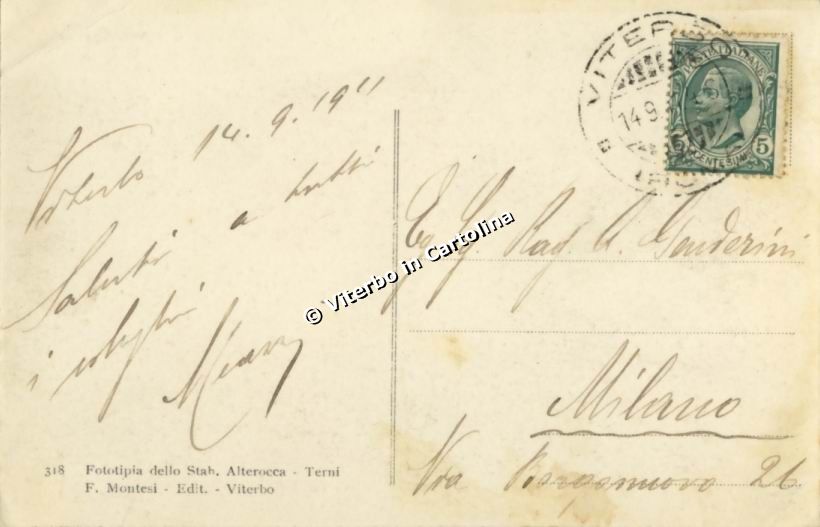 Viterbo 14.9.1911
Saluti a tutti
i colleghi
318 Fototipia dello Stab. Alterocca - Terni
F. Montesi - Edit. - Viterbo
© Viterbo in Cartolina
VITERBO
14.9.
POSTE ITALIANE
CENTESIMI 5
Eg. Sig. Rag. A.
Milano
Via 26